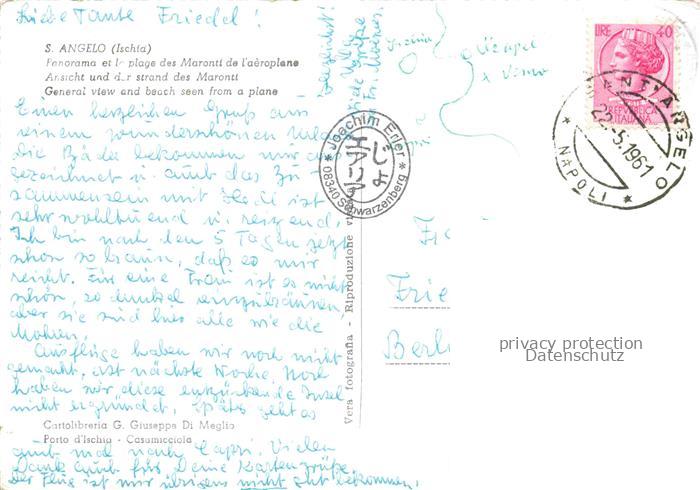 Liebe Tante Friedel!
S. ANGELO (Ischia)
Panorama et la plage des Maronti de l'aèroplane
Ansicht und der strand des Maronti
General view and beach seen from a plane
Einen herzlichen Gruß aus
einem wunderschönen
Die Bäder bekommen mir
gezeichnet u. auch das Zu-
sammensein mit ist
sehr wohltuend u. reizend.
Ich bin nach den 5 Tagen jetzt
schon so braun, daß es mir
reicht. Für eine Frau ist es nicht
schön, so dunkel
aber sie sind hier alle wie die
Mohren.
Ausflüge haben wir noch nicht
gemacht, erst nächste Woche. Noch
haben wir diese entzückende Insel
nicht ergründet. Später geht es
Cartolibreria G. Giuseppe Di Meglio
Porto d'Ischia - Casamicciola
auch mal nach Capri. Vielen
Dank auch für Deine Kartengrüße.
Der Flug ist mir übrigens nicht gut bekommen.
Vera fotografia - Riproduzione
Ischia
* Joachim Erler *
08340 Schwarzenberg
エアリア
じょ
LIRE 40
REPVBBLICA
ITALIANA
SANT'ANGELO
22.5.1961
* NAPOLI *
Frie
Berli
privacy protection
Datenschutz